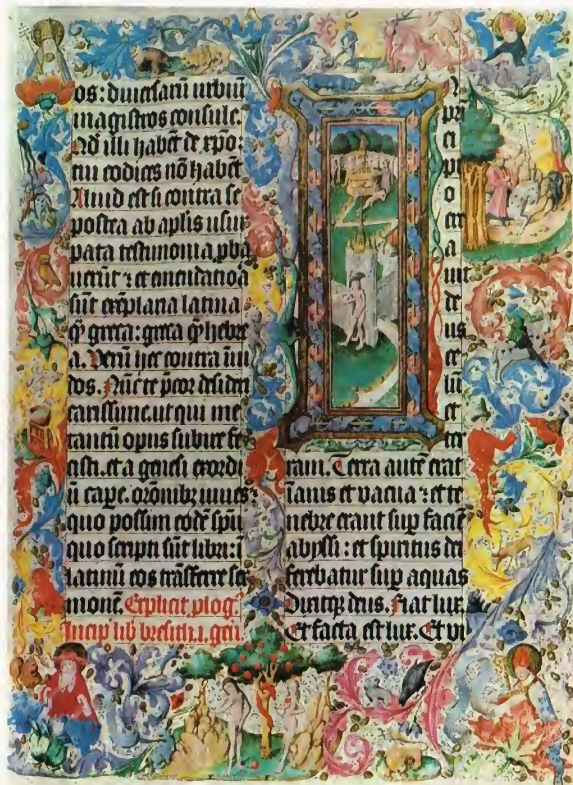 os: diuersarū urbiū
magistros consule.
Qd illi habēt de xpo:
tui codices nō habēt.
Aliud est si contra se
postea ab aplis usur
pata testimonia pba
uerūt: et emendatio
sūt exēplaria latina
q̄ greca: greca q̄ hebre
a. Verū hec contra īui
dos. Nūc te p̄cor desideri
carissime. ut qui me
tantū opus subire fe
cisti. et a genesi exordi
ū cape. orōnibz iuues
quo possim eodē spū
quo scripti sūt libri: ī
latinū eos trāsferre ser
monē. Explicit plog.
Incip lib bresith. i. geñ.
N
pri
ci
pi
o
cre
a
uit
de
us
ce
lū
et
ter
ram. Terra autē erat
inanis et vacua: et te
nebre erant sup faciē
abyssi: et spiritus dei
ferebatur sup aquas
Dixitqz deus. Fiat lux.
Et facta est lux. Et vi